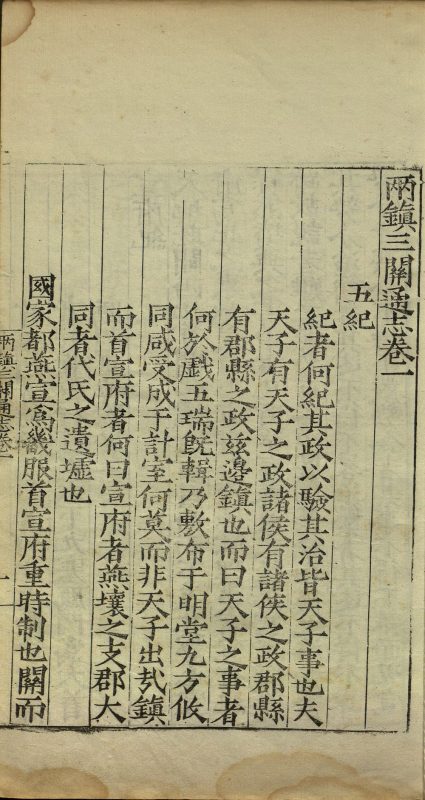 兩鎮三關通志卷一
五紀
紀者何紀其政以驗其治皆天子事也夫
天子有天子之政諸侯有諸侯之政郡縣
有郡縣之政玆邊鎮也而曰天子之事者
何於戲五瑞旣輯乃敷布于明堂九方攸
同咸受成于計室何莫而非天子出㢤鎮
而首宣府者何曰宣府者燕壤之支郡大
同者代氏之遺墟也
國家都燕宣爲畿服首宣府重時制也關而
兩鎮三關通志卷一
一